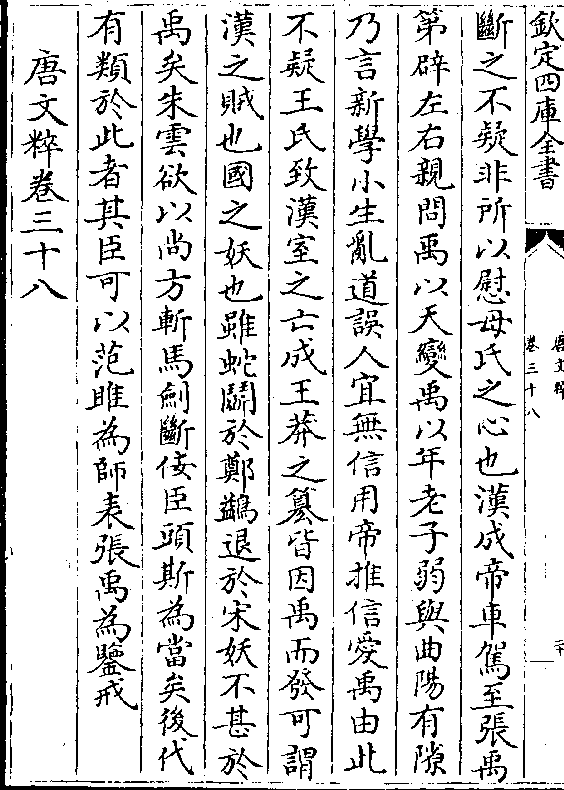 欽定四庫全書
唐文粹
卷三十八
斷之不疑非所以慰母氏之心也漢成帝車駕至張禹
第辟左右親問禹以天變禹以年老子弱與曲陽有隙
乃言新學小生亂道誤人宜無信用帝推信愛禹由此
不疑王氏致漢室之亡成王莽之簒皆因禹而發可謂
漢之賊也國之妖也雖蛇鬭於鄭鷁退於宋妖不甚於
禹矣朱雲欲以尚方斬馬劍斷佞臣頭斯為當矣後代
有類於此者其臣可以范雎為師表張禹為鑒戒
唐文粹卷三十八